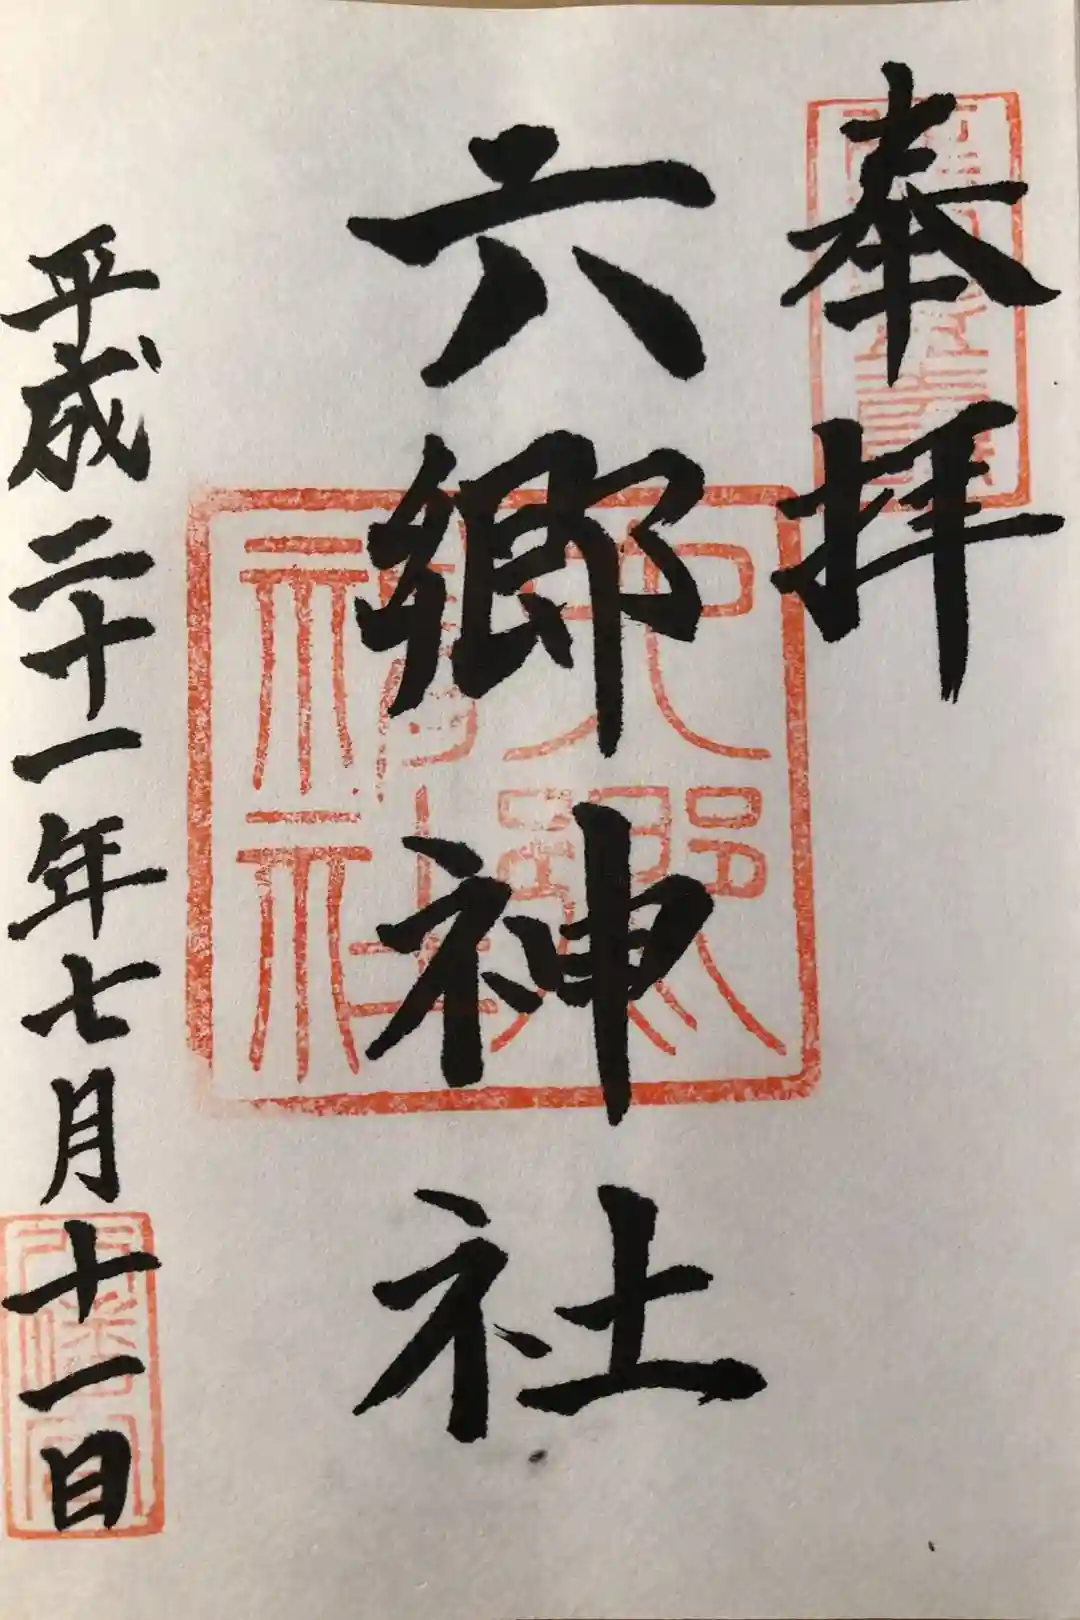 奉拝
六郷神社
六郷神社
平成二十一年七月十一日
八幡宮